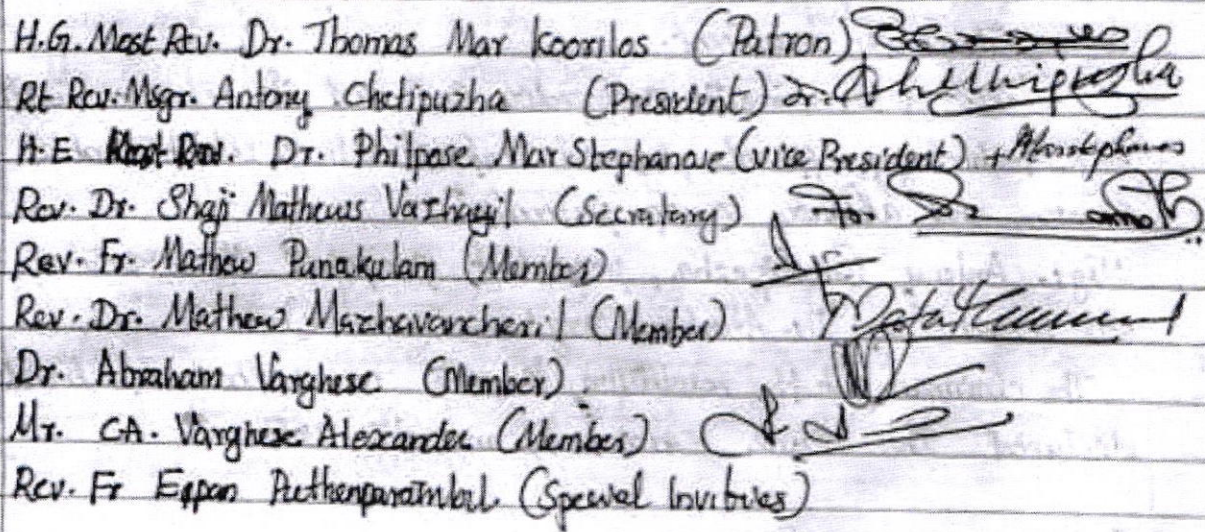 H.G. Most Rev. Dr. Thomas Mar Koorilos (Patron)
Rt Rev. Msgr. Antony Chetipuzha (President)
H.E Most Rev. Dr. Philipose Mar Stephanose (vice President) + Marstephanos
Rev. Dr. Shaji Mathews Vazhayil (Secretary)
Rev. Fr. Mathew Punakulam (Member)
Rev. Dr. Mathew Mazhavancheril (Member)
Dr. Abraham Varghese (Member)
Mr. CA. Varghese Alexander (Member)
Rev. Fr Eappan Puthenparambil (Special Invities)